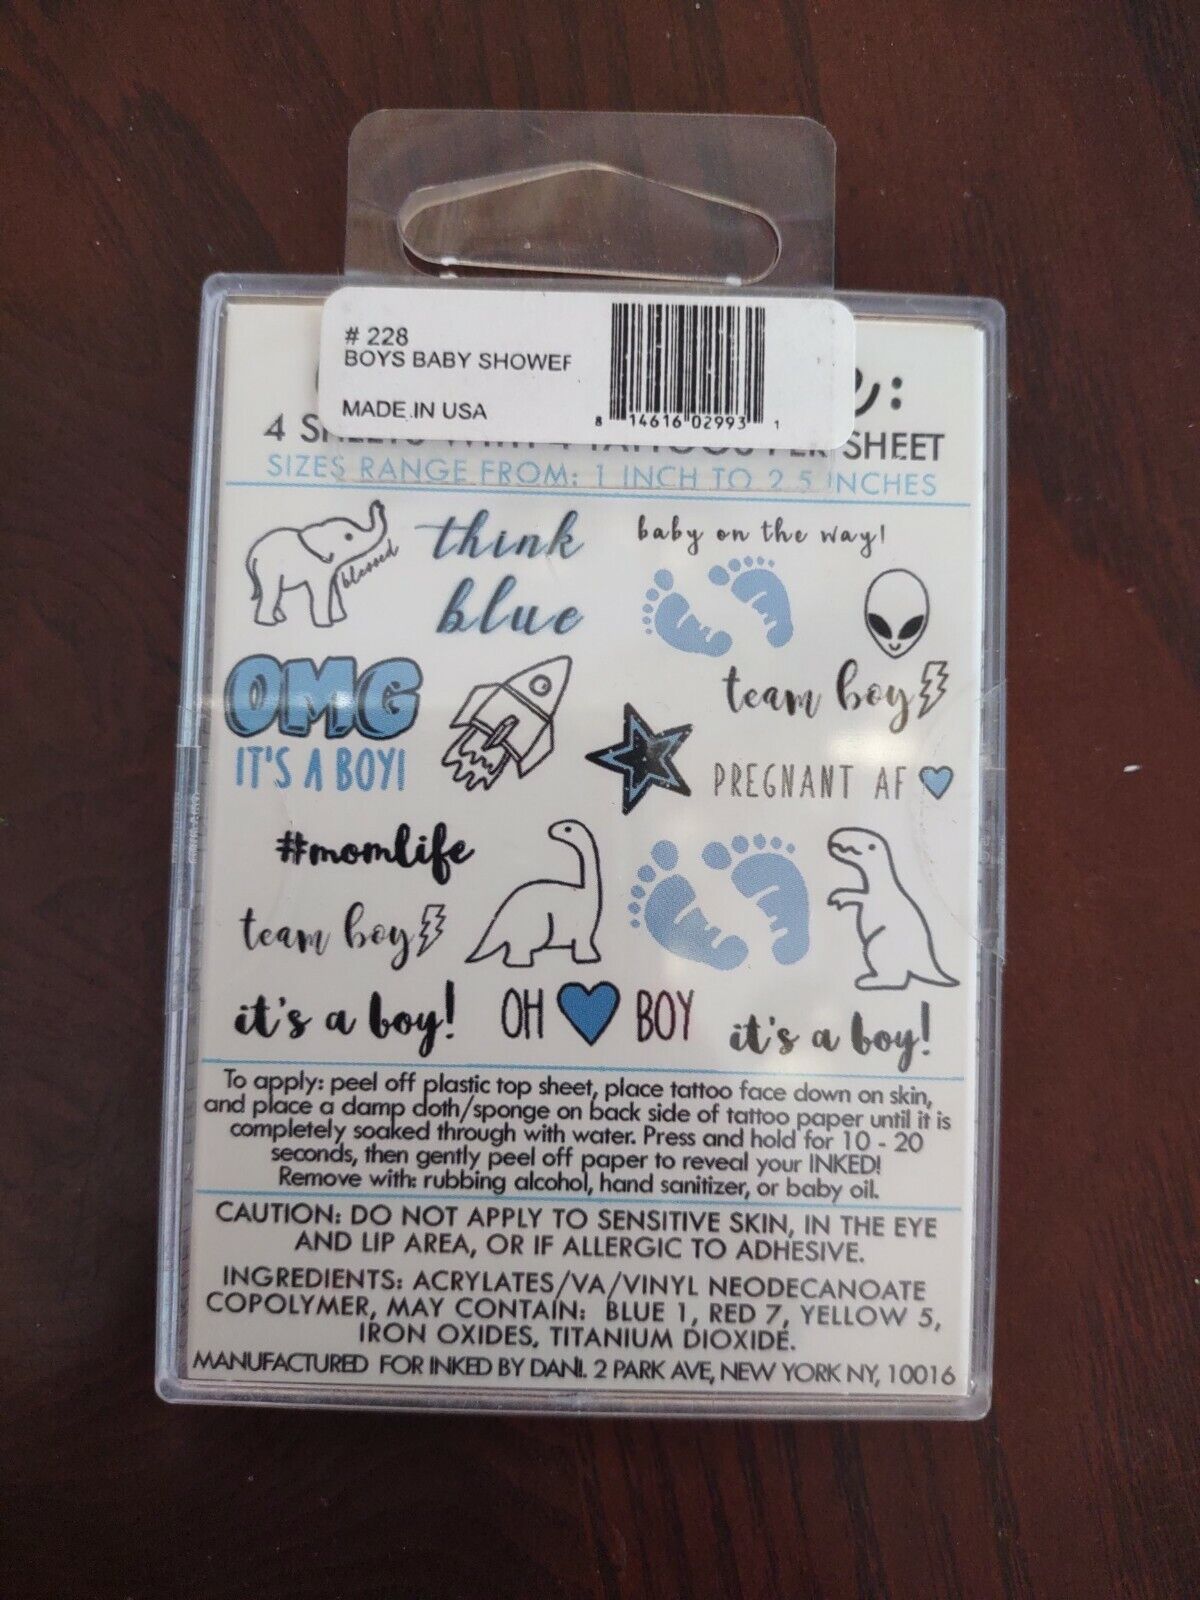 # 228
BOYS BABY SHOWER
MADE IN USA
8 14616 02993 1
e:
4 SHEETS WITH 4 TATTOOS PER SHEET
SIZES RANGE FROM: 1 INCH TO 2.5 INCHES
blessed
think
blue
baby on the way!
OMG
IT'S A BOY!
team boy
PREGNANT AF
#momlife
team boy
it's a boy!
OH BOY
it's a boy!
To apply: peel off plastic top sheet, place tattoo face down on skin,
and place a damp cloth/sponge on back side of tattoo paper until it is
completely soaked through with water. Press and hold for 10 - 20
seconds, then gently peel off paper to reveal your INKED!
Remove with: rubbing alcohol, hand sanitizer, or baby oil.
CAUTION: DO NOT APPLY TO SENSITIVE SKIN, IN THE EYE
AND LIP AREA, OR IF ALLERGIC TO ADHESIVE.
INGREDIENTS: ACRYLATES/VA/VINYL NEODECANOATE
COPOLYMER, MAY CONTAIN: BLUE 1, RED 7, YELLOW 5,
IRON OXIDES, TITANIUM DIOXIDE.
MANUFACTURED FOR INKED BY DANI. 2 PARK AVE, NEW YORK NY, 10016